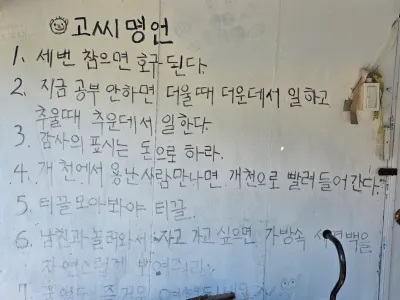 고씨 명언
1. 세번 참으면 호구 된다.
2. 지금 공부 안하면 더울때 더운데서 일하고
추울때 추운데서 일한다.
3. 감사의 표시는 돈으로 하라.
4. 개천에서 용난사람만나면 개천으로 빨려들어간다.
5. 티끌모아봐야 티끌.
6. 남친과 놀러와서 자고 가고 싶으면 가방속
자연스럽게
7. 즐거운